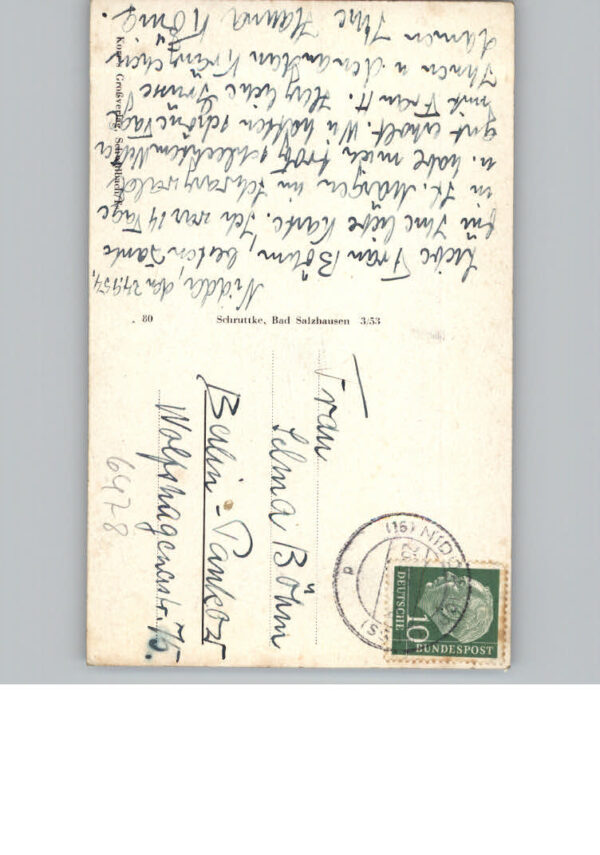 Nidda, den 24.9.54,
Liebe Frau Böhm, besten Dank
für Ihre liebe Karte. Ich war 14 Tage
in St. Märgen im Schwarzwald
u. habe mich trotz schlechtem
gut erholt. Wir hatten schöne Tage
mit Frau H. Herzliche Grüsse
Ihnen u den andern Kränzchen
damen Ihre Hanna König.
Großverlag,
80
Schruttke, Bad Salzhausen 3/53
Frau
Selma Böhm
Berlin-Pankow
Wolfshagenerstr. 75.
6478
(16) NIDDA
DEUTSCHE
BUNDESPOST
10